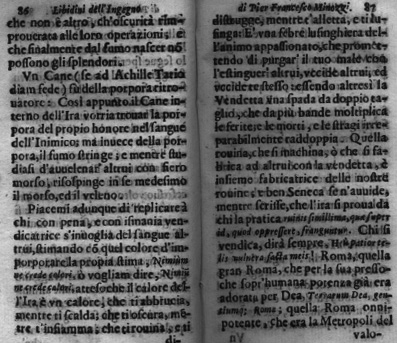 86 Libidini dell'Ingegno
che non è altro, ch'oscurità rim-
prouerata alle loro operationi, e
che finalmente dal fumo nascer nō
possono gli splendori.
Vn Cane (se ad Achille Tatio
diam fede) fù della porpora ritro-
uatore: Così appunto il Cane in-
terno dell'Ira vorria trouar la por-
pora del proprio honore nel sangue
dell'Inimico; mà inuece della por-
pora, il fumo stringe; e mentre stu-
diasi d'auuelenar altrui con fiero
morso, risospinge in se medesimo
il morso, ed il veleno.
Piacemi adunque di replicare
chi con pena, e con smania ven-
dicatrice s'inuoglia del sangue al-
trui, stimando cō quel colore d'im-
porporare la propria stima, Nimium
ne crede colori, ò vogliam dire, Nimiū
ne crede calori, attesoche il calore del-
l'Ira è vn calore, che ti abbrucia,
mentre ti scalda; che ti oscura, men-
tre t'infiamma; che ti rouina, e ti
di-
di Pier Francesco Minozzi. 87
distrugge, mentre t'alletta, e ti lu-
singa: E' vna febre lusinghiera del-
l'animo appassionato, che promet-
tendo di purgar' il tuo male con
l'estinguer altrui, vccide altrui, ed
vccide te stesso; essendo altresì la
Vendetta vna spada da doppio ta-
glio, che da più bande moltiplica
le ferite; le morti, e le stragi irre-
parabilmente raddoppia. Quella
rouina, che si machina, ò che si fa-
brica ad altrui con la vendetta, è
insieme fabricatrice delle nostre
rouine; e ben Seneca se n'auuide,
mentre scrisse, che l'ira si proua da
chi la pratica ruinis simillima, quæ super
id, quod oppressere, franguntur. Chi si
vendica, dirà sempre,
vulnera facta meis! Roma, quella
gran Roma, che per la sua presso-
che sopr'humana potenza già era
adorata per Dea, Terrarum Dea, gen-
tiumq; Roma; quella Roma onni-
potente, che era la Metropoli del
valo-